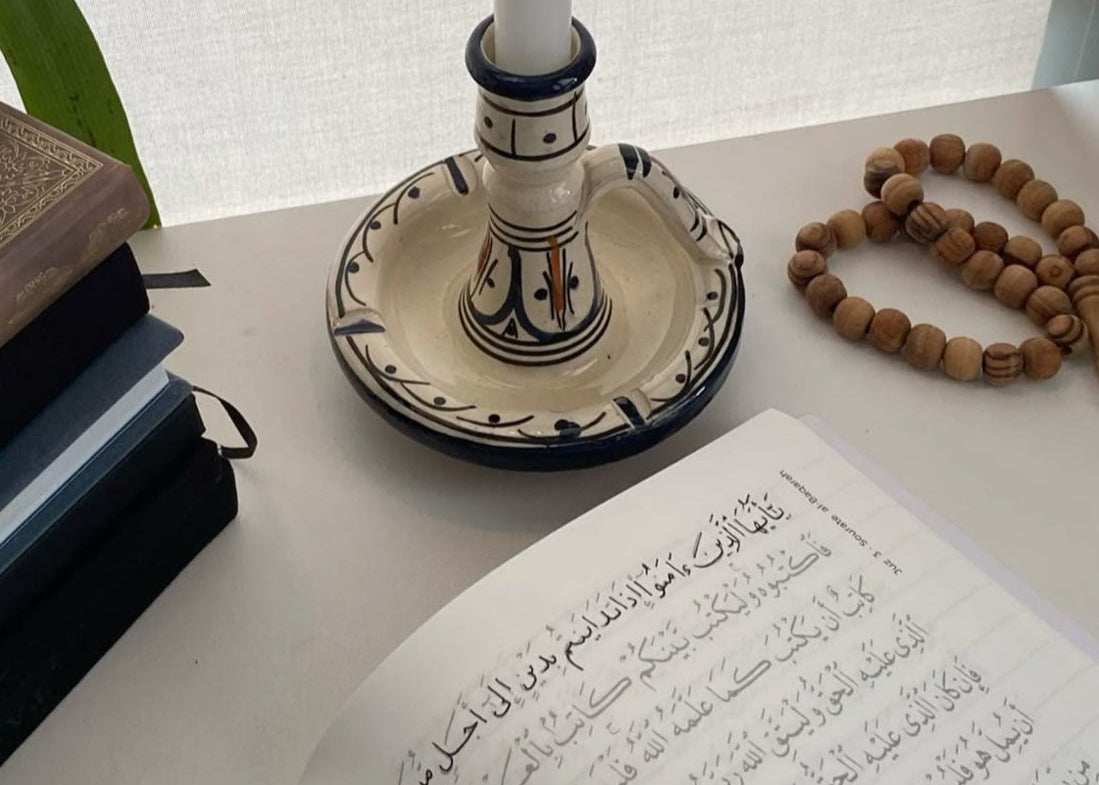 Juz 3 . Sourate al-Baqarah
يَٰٓأَيُّهَا ٱلَّذِينَ ءَامَنُوٓاْ إِذَا تَدَايَنتُم بِدَيْنٍ إِلَىٰٓ أَجَلٍ
فَٱكْتُبُوهُ وَلْيَكْتُب بَّيْنَكُمْ كَاتِبٌۢ
كَاتِبٌ أَن يَكْتُبَ كَمَا عَلَّمَهُ ٱللَّهُ
ٱلَّذِى عَلَيْهِ ٱلْحَقُّ وَلْيَتَّقِ ٱللَّهَ
فَإِن كَانَ ٱلَّذِى عَلَيْهِ
أَن يُمِلَّ هُوَ